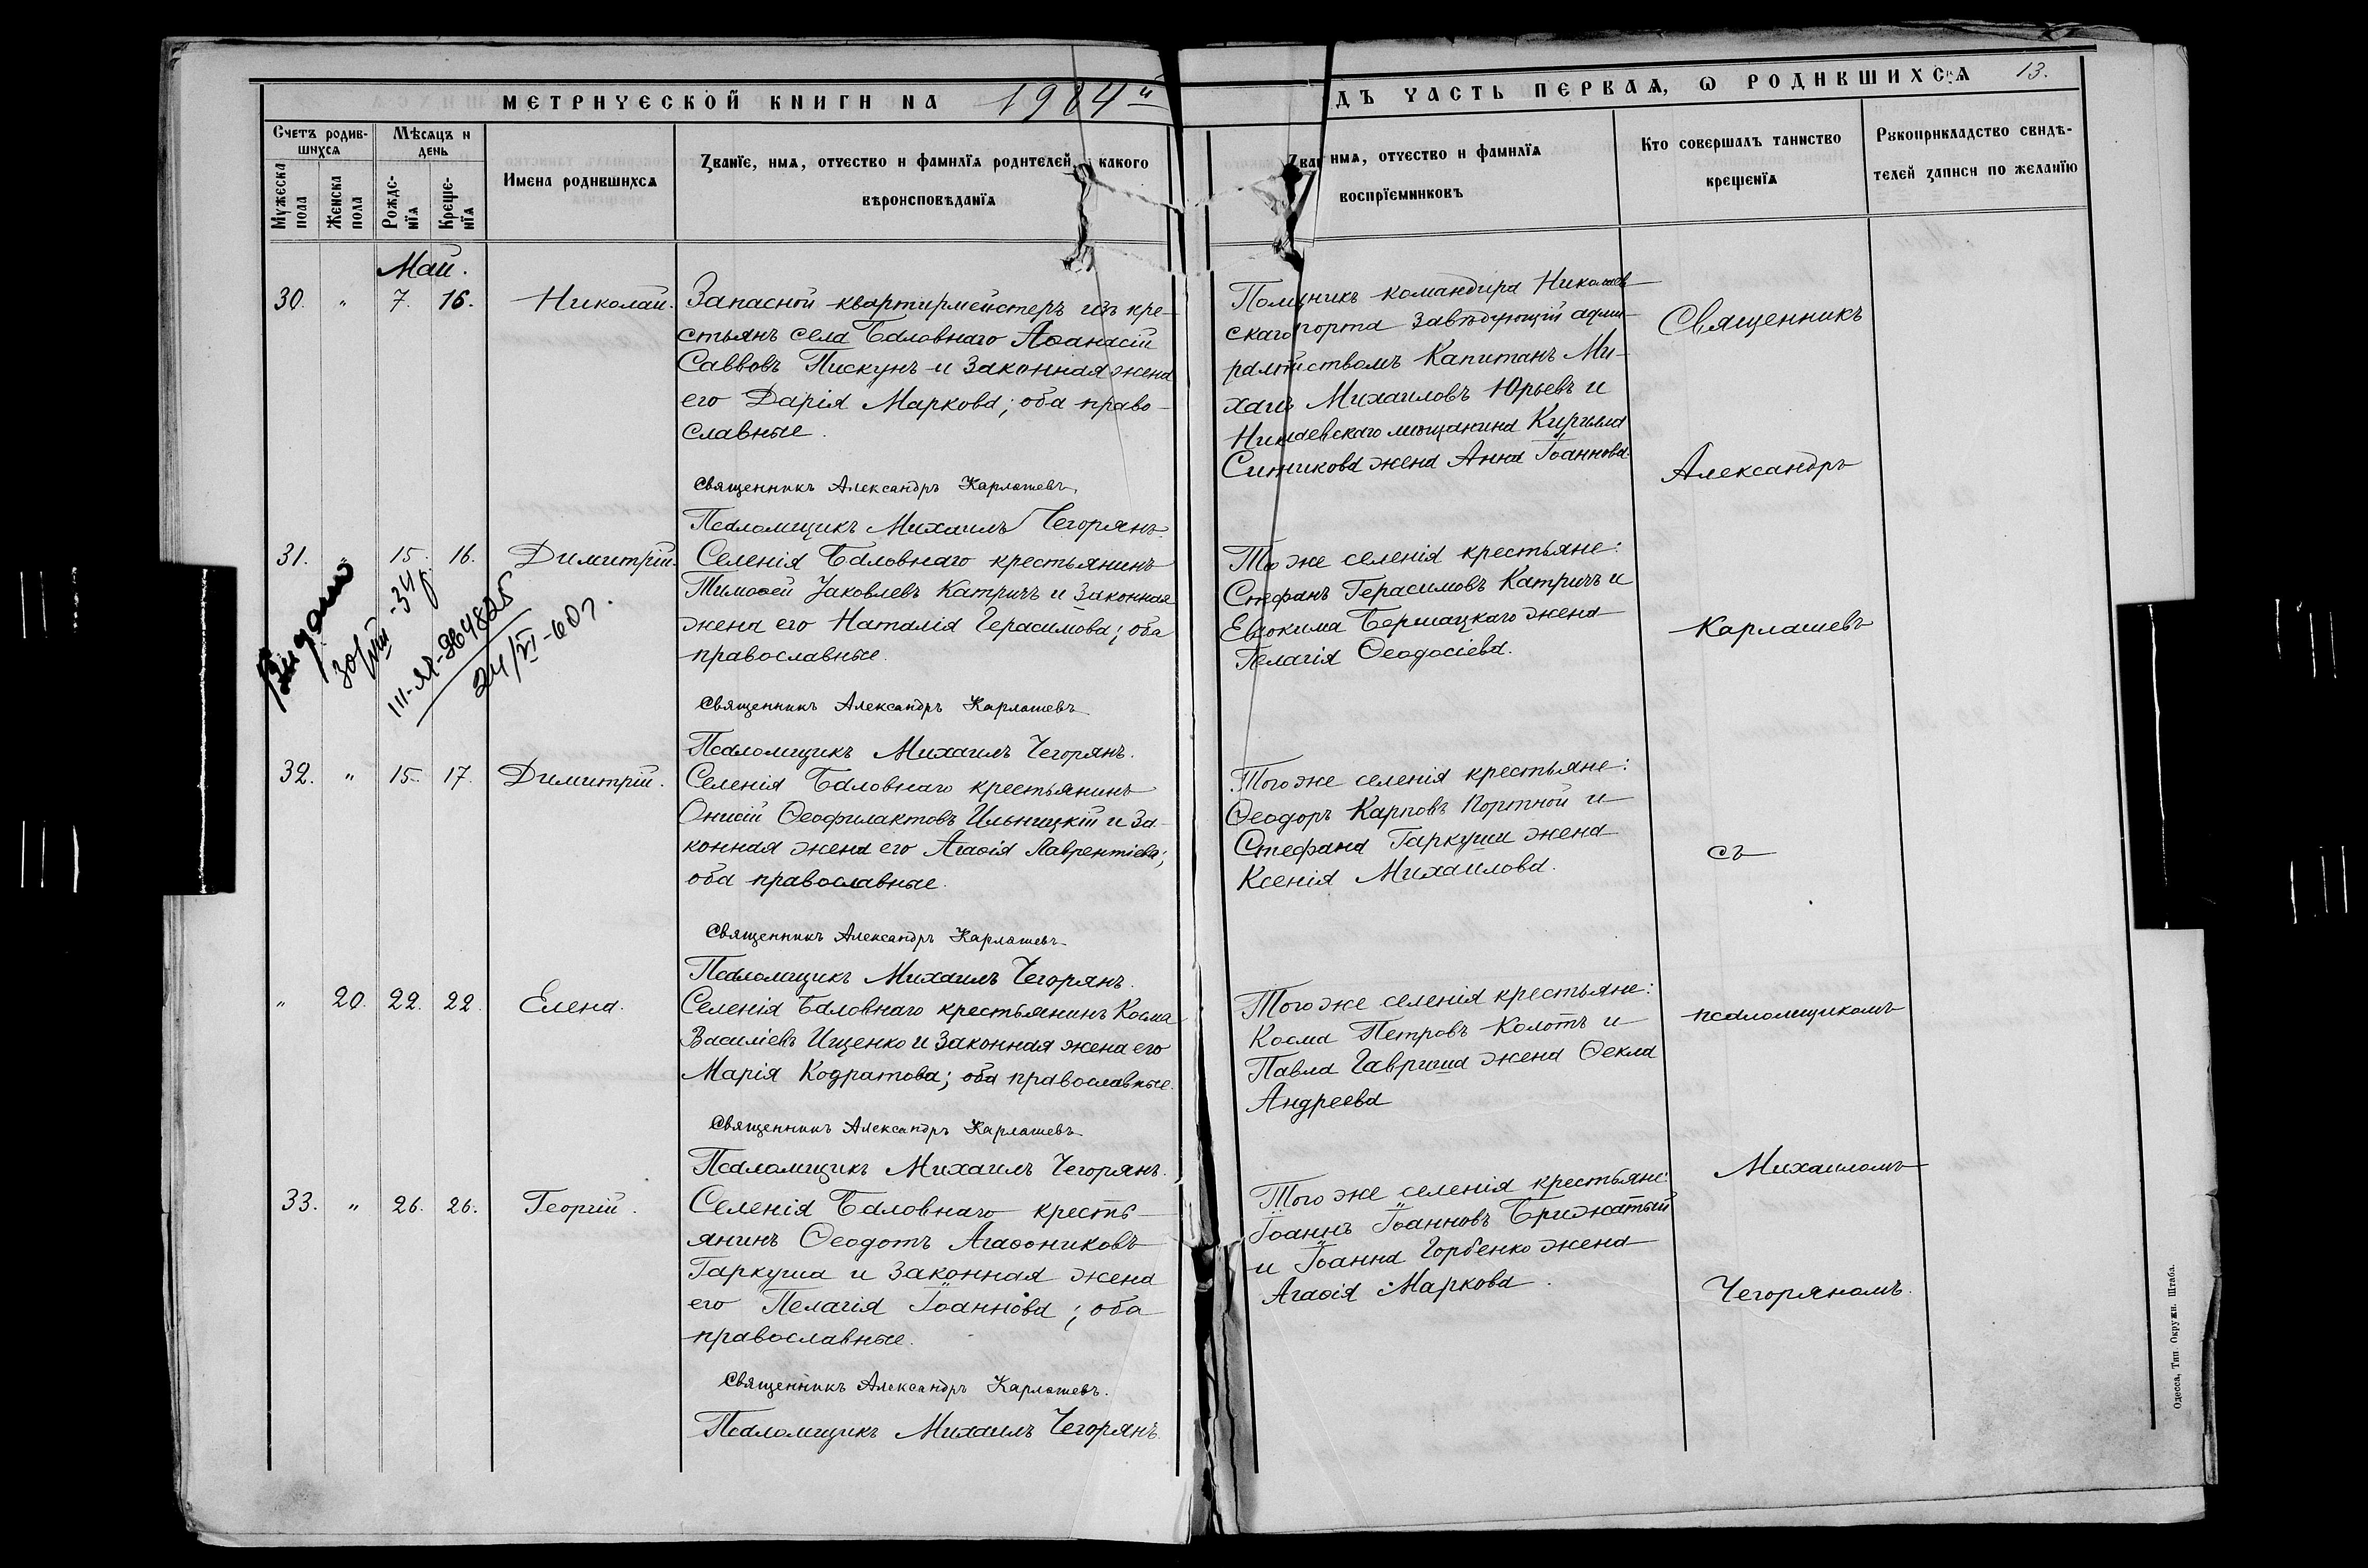 МЕТРИЧЕСКОЙ КНИГИ НА 1904й
Счетъ родив-
шихся
Мѣсяцъ и
день
Мужеска
пола
Женска
пола
Рожде-
нія
Креще-
нія
Имена родившихся
Званїе, имя, отчество и фамилїя родителей, и какого
вѣроисповѣданїя
Май.
30. " 7. 16. Николай.
Запасной квартирмейстеръ изъ кре-
стьянъ села Баловнаго Аѳанасій
Саввовъ Пискунъ и законная жена
его Дарія Маркова; оба право-
славные.
Священникъ Александръ Карлашевъ.
Псаломщикъ Михаилъ Чегорянъ.
31. " 15. 16. Димитрій.
Селенія Баловнаго крестьянинъ
Тимоѳей Яковлевъ Катричъ и законная
жена его Наталія Герасимова; оба
православные.
Видано
30/VIII-34 р.
III-ЯЯ-264825
24/VI-60 г.
Священникъ Александръ Карлашевъ
Псаломщикъ Михаилъ Чегорянъ.
32. " 15. 17. Димитрій.
Селенія Баловнаго крестьянинъ
Онисій Ѳеофилактовъ Ильницкій и за-
конная жена его Агаѳія Лаврентіева;
оба православные.
Священникъ Александръ Карлашевъ
Псаломщикъ Михаилъ Чегорянъ.
" 20. 22. 22. Елена.
Селенія Баловнаго крестьянинъ Косма
Василіевъ Ищенко и законная жена его
Марія Кодратова; оба православные.
Священникъ Александръ Карлашевъ
Псаломщикъ Михаилъ Чегорянъ.
33. " 26. 26. Георгій.
Селенія Баловнаго кресть-
янинъ Ѳеодотъ Агаѳониковъ
Гаркуша и законная жена
его Пелагія Іоаннова; оба
православные.
Священникъ Александръ Карлашевъ.
Псаломщикъ Михаилъ Чегорянъ.
ДЪ ЧАСТЬ ПЕРВАЯ, Ѡ РОДИВШИХСЯ 13.
Зван имя, отчество и фамилїя
воспрїемниковъ
Кто совершалъ таинство
крещенїя
Рукоприкладство свидѣ-
телей записи по желанїю
Помщникъ командира Николаев-
скаго порта завѣдующій адми-
ралтйствомъ Капитанъ Ми-
хаилъ Михаиловъ Юрьевъ и
Никлаевскаго мѣщанина Кирилла
Ситникова жена Анна Іоаннова.
То же селенія крестьяне:
Стефанъ Герасимовъ Катричъ и
Евдокима Бершацкаго жена
Пелагія Ѳеодосіева.
Того же селенія крестьяне:
Ѳеодоръ Карповъ Портной и
Стефана Гаркуши жена
Ксенія Михаилова.
Того же селенія крестьяне:
Косма Петровъ Колотъ и
Павла Гавриша жена Ѳекла
Андреева
Того же селенія крестьяне:
Іоаннъ Іоанновъ Брижатый
и Іоанна Горбенко жена
Агаѳія Маркова.
Священникъ
Александръ
Карлашевъ
съ
псаломщикомъ
Михаиломъ
Чегоряномъ.
Одесса, Тип Окружн. Штаба.